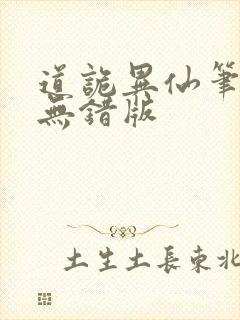 道詭異仙筆
無錯版
土生土長東北